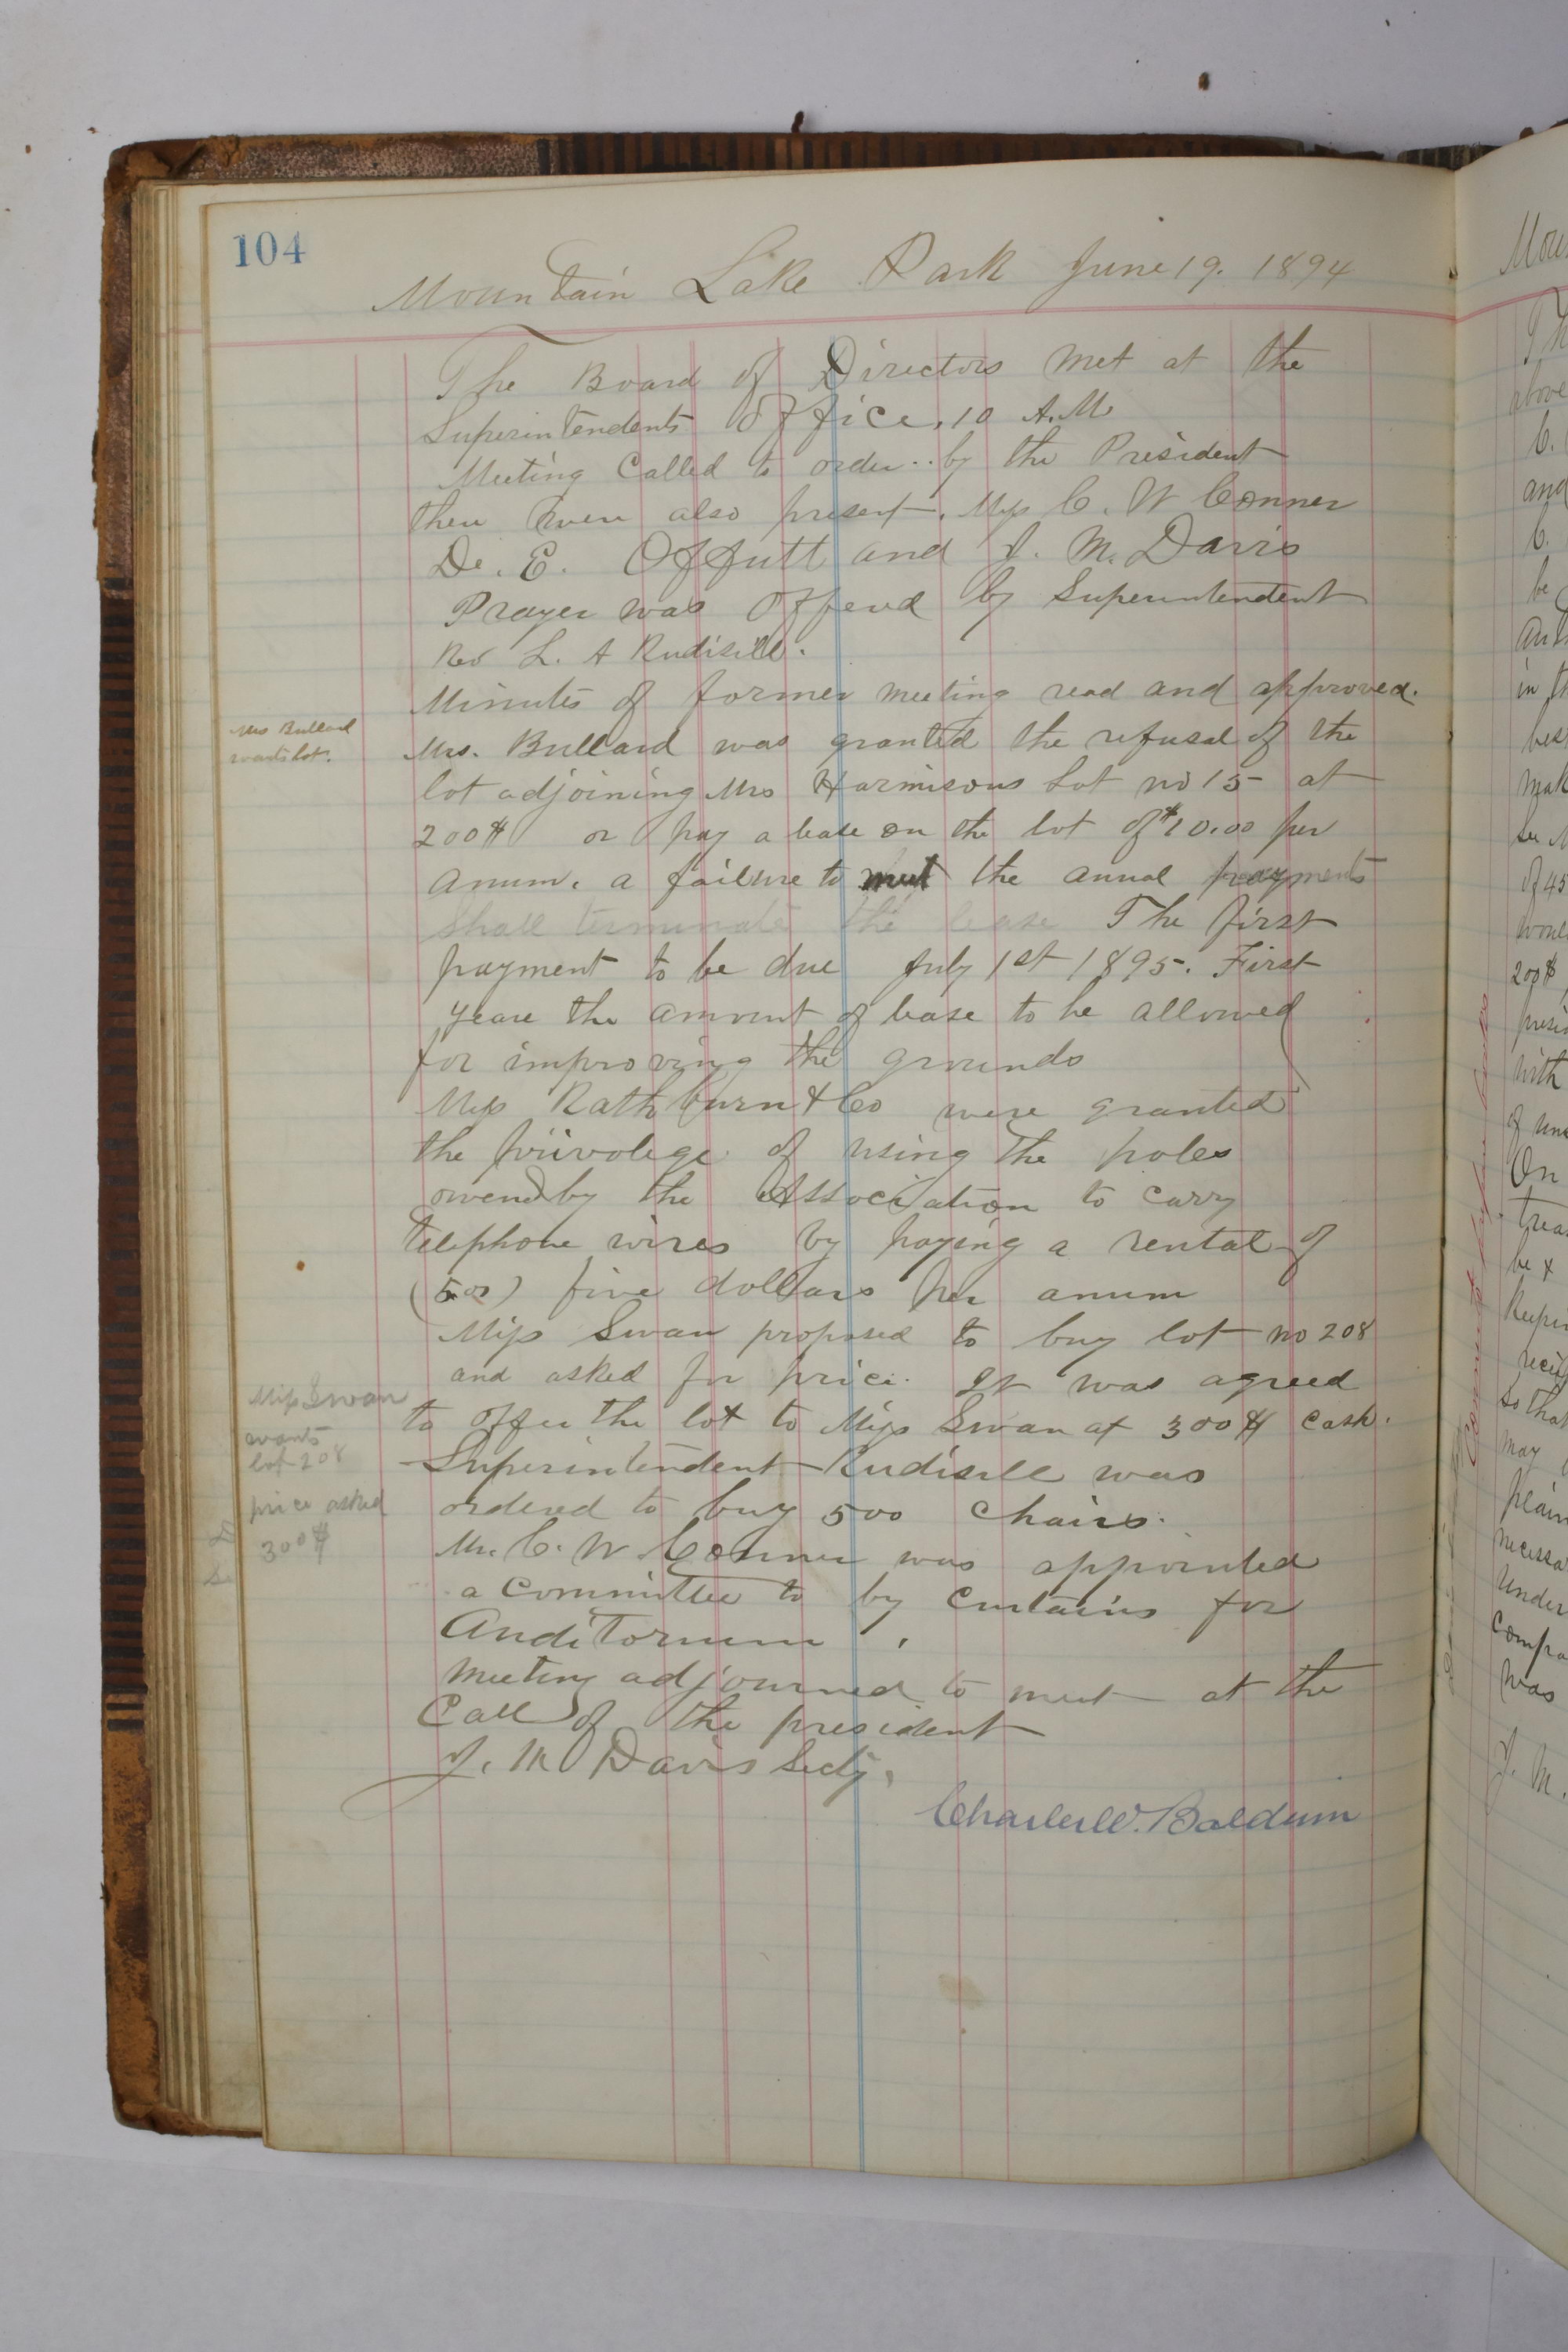 104
Mountain Lake Park June 19. 1894
The Board of Directors met at the
Superintendents Office. 10 A.M.
Meeting Called to order by the President
there were also present. Mess C. W Conner
Dr. E. Offutt and J. M. Davis
Prayer was offered by Superintendent
Rev L. A Rudisill.
Minutes of former meeting read and approved.
Mrs Bullard
wants lot.
Mrs. Bullard was granted the refusal of the
lot adjoining Mrs Harmisons Lot no 15 at
200$ or pay a lease on the lot of $10.00 per
anum. a failure to meet the annual payments
shall terminate the lease The first
payment to be due July 1st 1895. First
yeare the amount of lease to be allowed
for improving the grounds
Mess Rathburn & Co were granted
the privolege of using the poles
owened by the Association to carry
telephone wires by paying a rental of
(5.00) five dollars per anum
Miss Swan proposed to buy lot no 208
and asked for price. It was agreed
to offer the lot to Miss Swan at 300$ cash.
Miss Swan
wants
lot 208
price asked
300$
Superintendent Rudisill was
ordered to buy 500 chairs.
Mr. C. W Conner was appointed
a committee to by curtains for
Auditorium.
Meeting adjourned to meet at the
Call of the president
J. M Davis Secty.
Charles W. Baldwin